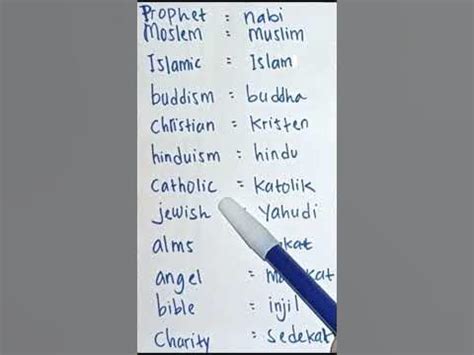 Prophet = nabi
Moslem = muslim
Islamic = Islam
buddism = buddha
Christian = Kristen
hinduism = hindu
Catholic = Katolik
jewish : Yahudi
alms
angel =
bible = injil
Charity = sedekat